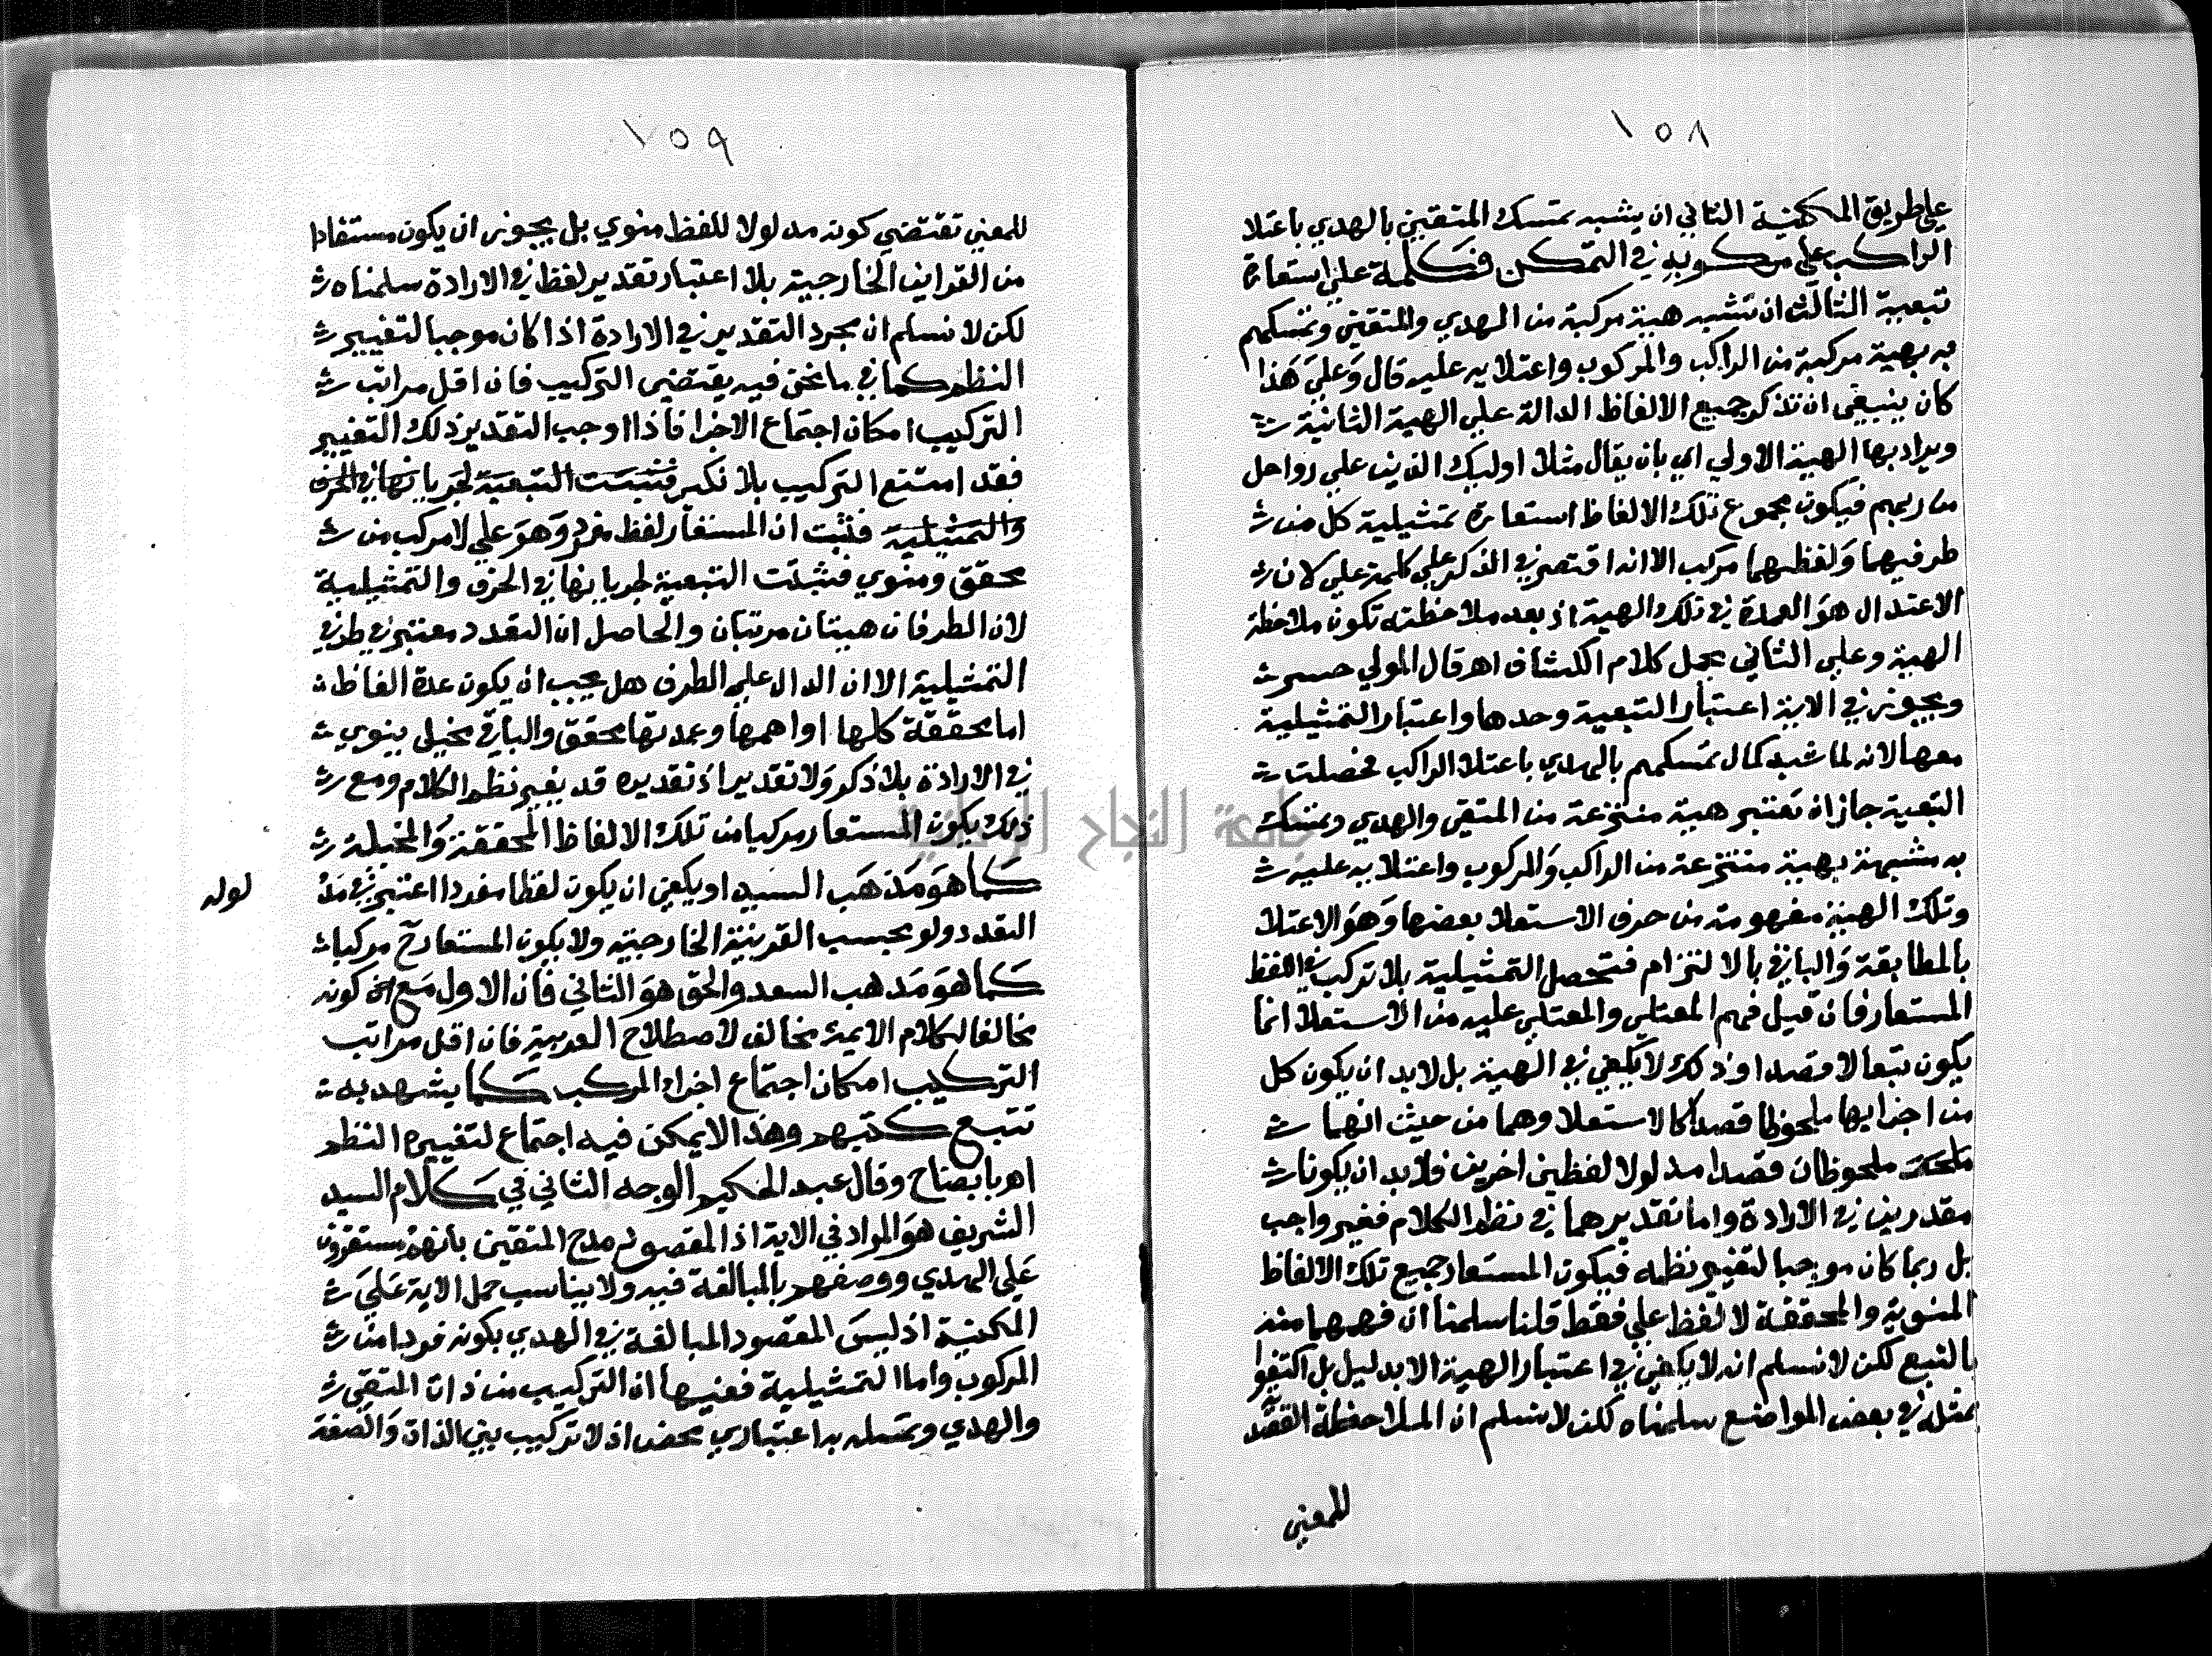 ١٥٨
على طريق المكنية الثاني ان يشبه تمسك المتقين بالهدي باعتلا
الراكب على مركوبه في التمكن فكلمة على استعارة
تبعية الثالث ان تشبه هيئة مركبة من الهدي والمتقي وتمسكهم
به بهيئة مركبة من الراكب والمركوب واعتلايه عليه قال وعلى هذا
كان ينبغي ان تذكر جميع الالفاظ الدالة على الهيئة الثانية
ويراد بها الهيئة الاولي اي بان يقال مثلا اوليك الذين على رواحل
من ربهم فيكون مجموع تلك الالفاظ استعارة تمثيلية كل من
طرفيها ولفظهما مركب الا انه اقتصر في الذكر على كلمة على لان
الاعتدال هو العمدة في تلك الهيئة اذ بعد ملاحظته تكون ملاحظة
الهيئة وعلى الثاني يحمل كلام الكشاف اهـ قال المولي حسن
ويجوز في الاية اعتبار التبعية وحدها واعتبار التمثيلية
معها لانه لما شبه كمال تمسكهم بالهدي باعتلا الراكب فحصلت
التبعية جاز ان تعتبر هيئة منتزعة من المتقي والهدي وتمسك
به مشبهة بهيئة منتزعة من الراكب والمركوب واعتلايه عليه
وتلك الهيئة مفهومة من حرف الاستعلا بعضها وهو الاعتلا
بالمطابقة والباقي بالالتزام فتحصل التمثيلية بلا تركب في اللفظ
المستعار فان قيل فهم المعتلي والمعتلي عليه من الاستعلا انما
يكون تبعا لا قصدا وذلك لا يكفي في الهيئة بل لا بد ان يكون كل
من اجزايها ملحوظا قصدا كالاستعلا وهما من حيث انهما
ملحوظان قصدا مدلولا لفظين اخرين فلا بد ان يكونا
مقدرين في الارادة واما تقديرهما في نظم الكلام فغير واجب
بل ربما كان موجبا لتغيير نظمه فيكون المستعار جميع تلك الالفاظ
المنوية والمحققة لا لفظ على فقط قلنا سلمنا ان فهمهما منه
بالتبع لكن لا نسلم انه لا يكفي في اعتبار الهيئة الا بدليل بل اكتفوا
بمثله في بعض المواضع سلمناه لكن لا نسلم ان الملاحظة القصد
للمعني
١٥٩
للمعني تقتضي كونه مدلولا للفظ منوي بل يجوز ان يكون مستفادا
من القراين الخارجية بلا اعتبار تقدير لفظ في الارادة سلمناه
لكن لا نسلم ان مجرد التقدير في الارادة اذا كان موجبا لتغيير
النظم كما في ما نحن فيه يقتضي التركيب فان اقل مراتب
التركيب امكان اجتماع الاجزا فاذا اوجب التقدير ذلك التغيير
فقد امتنع التركيب بلا نكير فثبتت التبعية لجريانها في الحرف
والتمثيلية فثبت ان المستعار لفظ مفرد وهو على لا مركب من
محقق ومنوي فثبتت التبعية لجريانها في الحرف والتمثيلية
لان الطرفان هيئتان مرتبان والحاصل ان التعدد معتبر في طرفي
التمثيلية الا ان الدال على الطرف هل يجب ان يكون عدة الفاظ
اما محققة كلها او اهمها وعمدتها محقق والباقي مخيل ينوي
في الارادة بلا ذكر ولا تقدير اذ تقديره قد يغير نظم الكلام ومع
ذلك يكون المستعار مركبا من تلك الالفاظ المحققة والمخيلة
كما هو مذهب السيد او يكفي ان يكون لفظا مفردا اعتبر في مد
لوله
التعدد ولو بحسب القرينة الخارجية ولا يكون المستعار ح مركبا
كما هو مذهب السعد والحق هو الثاني فان الاول مع كونه
مخالفا لكلام الايمة مخالف لاصطلاح العربية فان اقل مراتب
التركيب امكان اجتماع اجزا المركب كما يشهد به
تتبع كتبهم وهذا لا يمكن فيه اجتماع لتغييره النظم
اهـ بايضاح وقال عبد الحكيم الوجه الثاني في كلام السيد
الشريف هو المراد في الاية اذ المقصود مدح المتقين بانهم مستقرون
على الهدي ووصفهم بالمبالغة فيه ولا يناسب حمل الاية على
المكنية اذ ليس المقصود المبالغة في الهدي بكونه فردا من
المركوب واما التمثيلية ففيها ان التركيب من ذات المتقي
والهدي وتمسكه به اعتباري محض اذ لا تركيب بين الذات والصفة